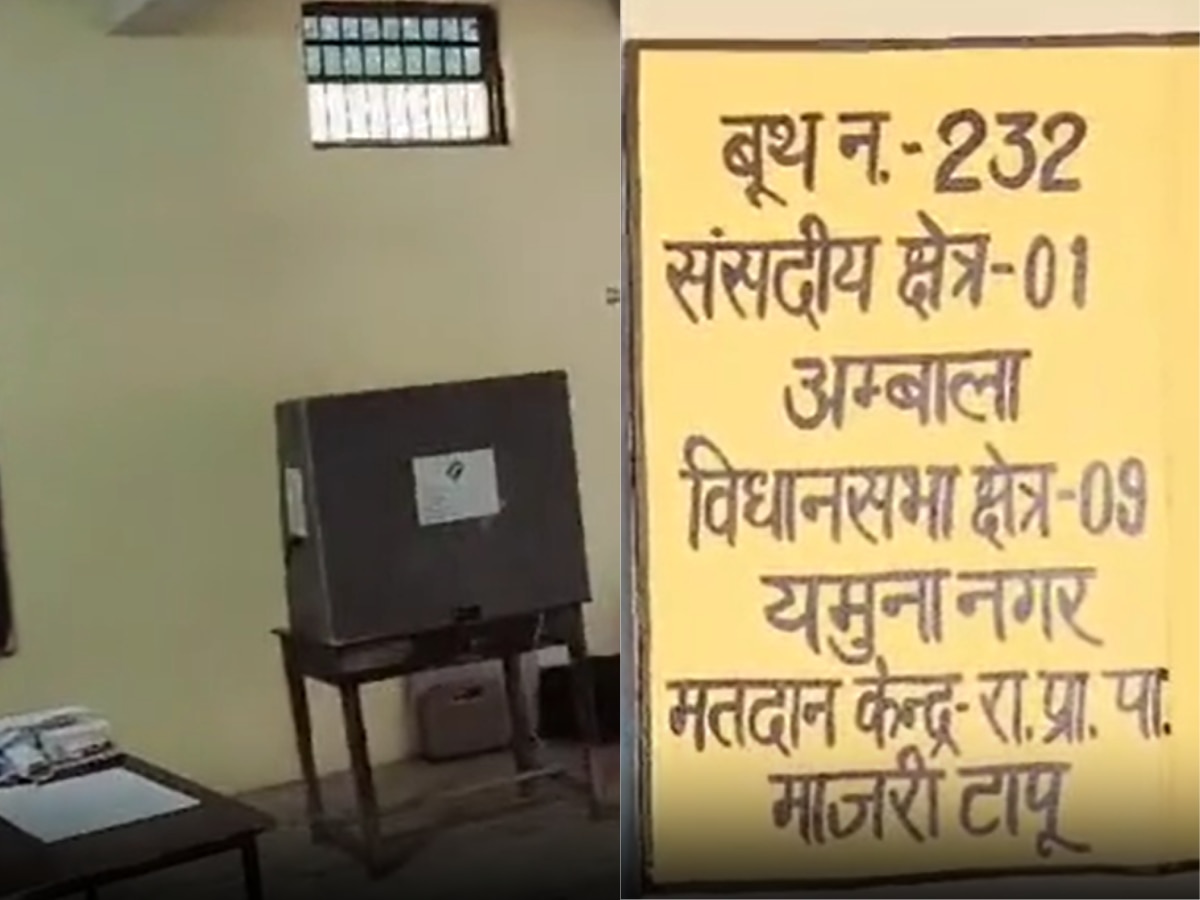 बूथ न.-232
संसदीय क्षेत्र-01
अम्बाला
विधानसभा क्षेत्र-09
यमुना नगर
मतदान केन्द्र-रा.प्रा.पा.
माजरी टापू